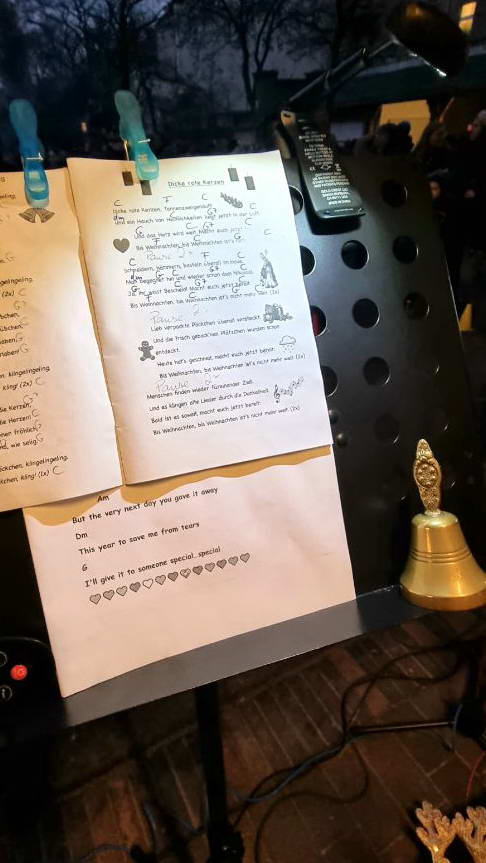 ngeling.
ngeling.
(2x) C
bchen,
übchen
aben
riaben!
en: klingelingeling,
kling! (2x) C
Die Kerzen
die Herzen!
nen fröhlich
nd, wie selig
öckchen, klingelingeling,
ckchen, kling! (1x) C
Dicke rote Kerzen
C F C
Dicke rote Kerzen, Tannenzweigenduft
dm G7 C
und ein Hauch von Heimlichkeiten liegt jetzt in der Luft.
G C G7 C
Und das Herz wird weit. Macht euch jetzt
F C
Bis Weihnachten, bis Weihnachten ist's
Pause
C F C
Schneidern, hämmern, basteln überall im Haus.
dm G C
Man begegnet hin und wieder schon dem Nikolaus.
G C G7 C
Ja, ihr wisst Bescheid! Macht euch jetzt bereit:
F C G C
Bis Weihnachten, bis Weihnachten ist's nicht mehr weit. (2x)
Pause
Lieb verpackte Päckchen überall versteckt.
Und die frisch gebacknen Plätzchen wurden schon
entdeckt.
Heute hat's geschneit, macht euch jetzt bereit:
Bis Weihnachten, bis Weihnachten ist's nicht mehr weit (2x)
Pause 2
Menschen finden wieder füreinander Zeit.
Und es klingen alte Lieder durch die Dunkelheit.
Bald ist es soweit, macht euch jetzt bereit:
Bis Weihnachten, bis Weihnachten ist's nicht mehr weit. (2x)
Am
But the very next day you gave it away
Dm
This year to save me from tears
G
I'll give it to someone special...special